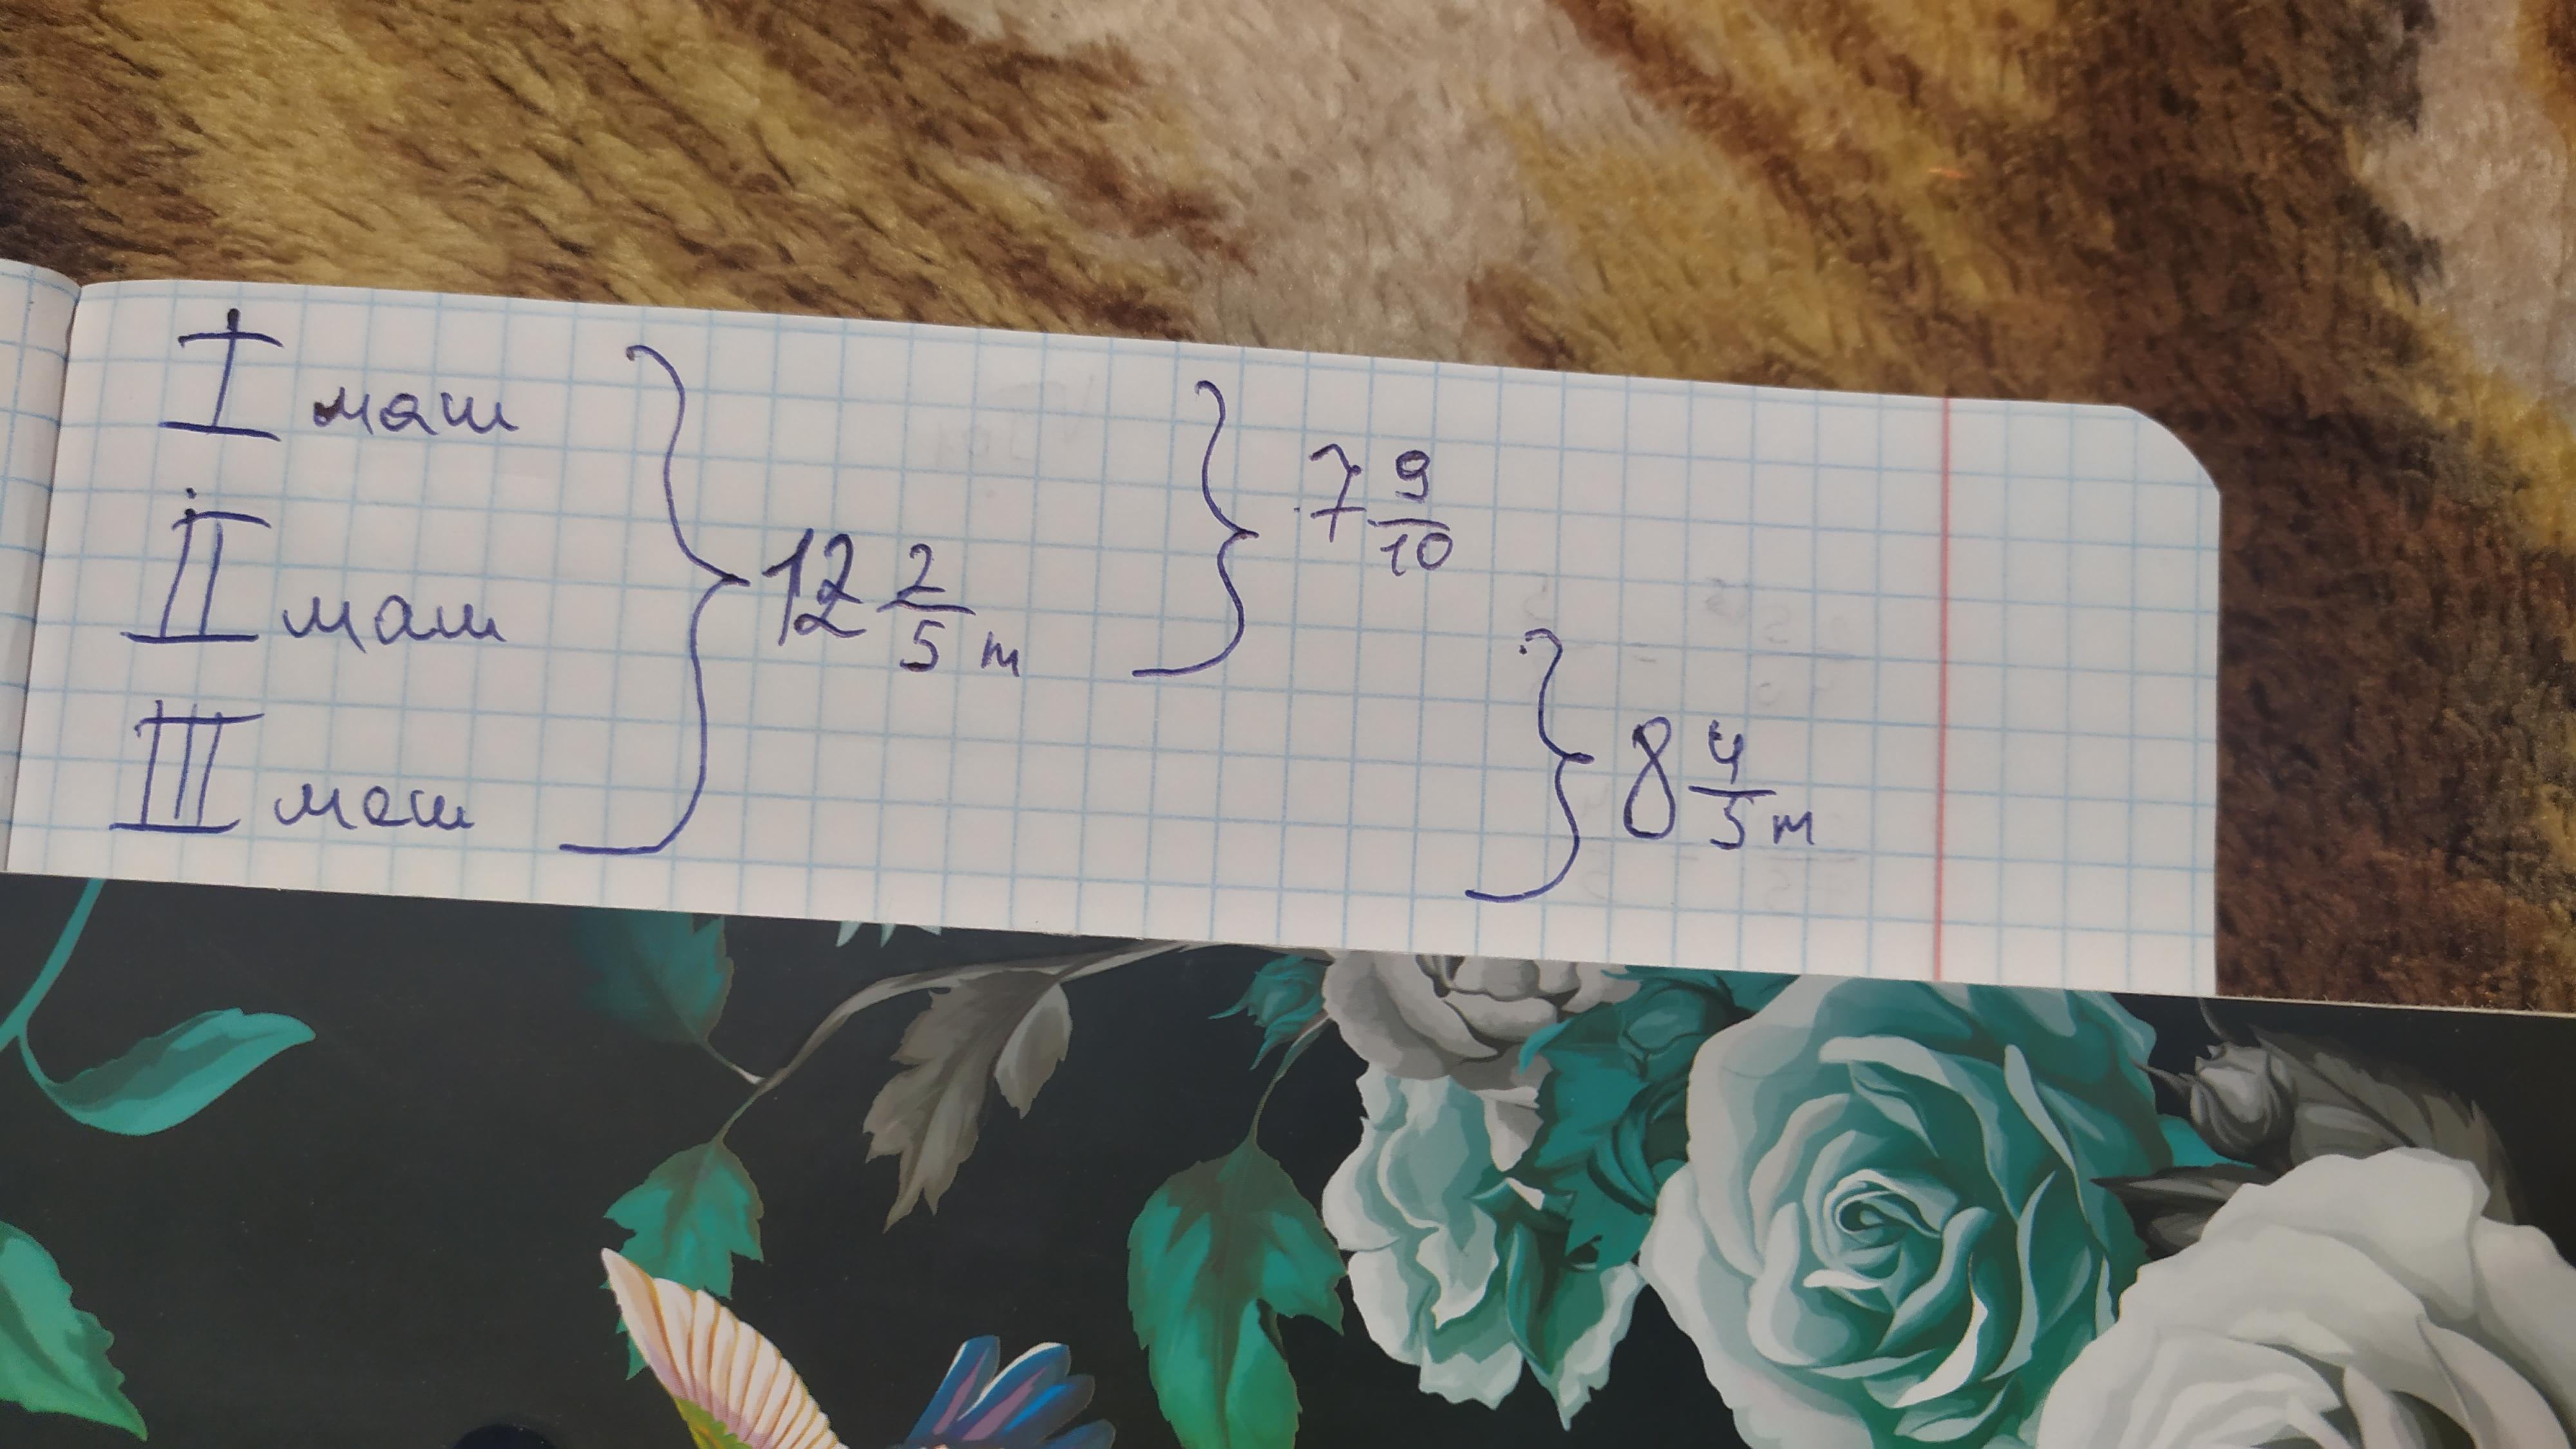 I маш
7 9/10
II маш
12 2/5 т
III маш
8 4/5 т